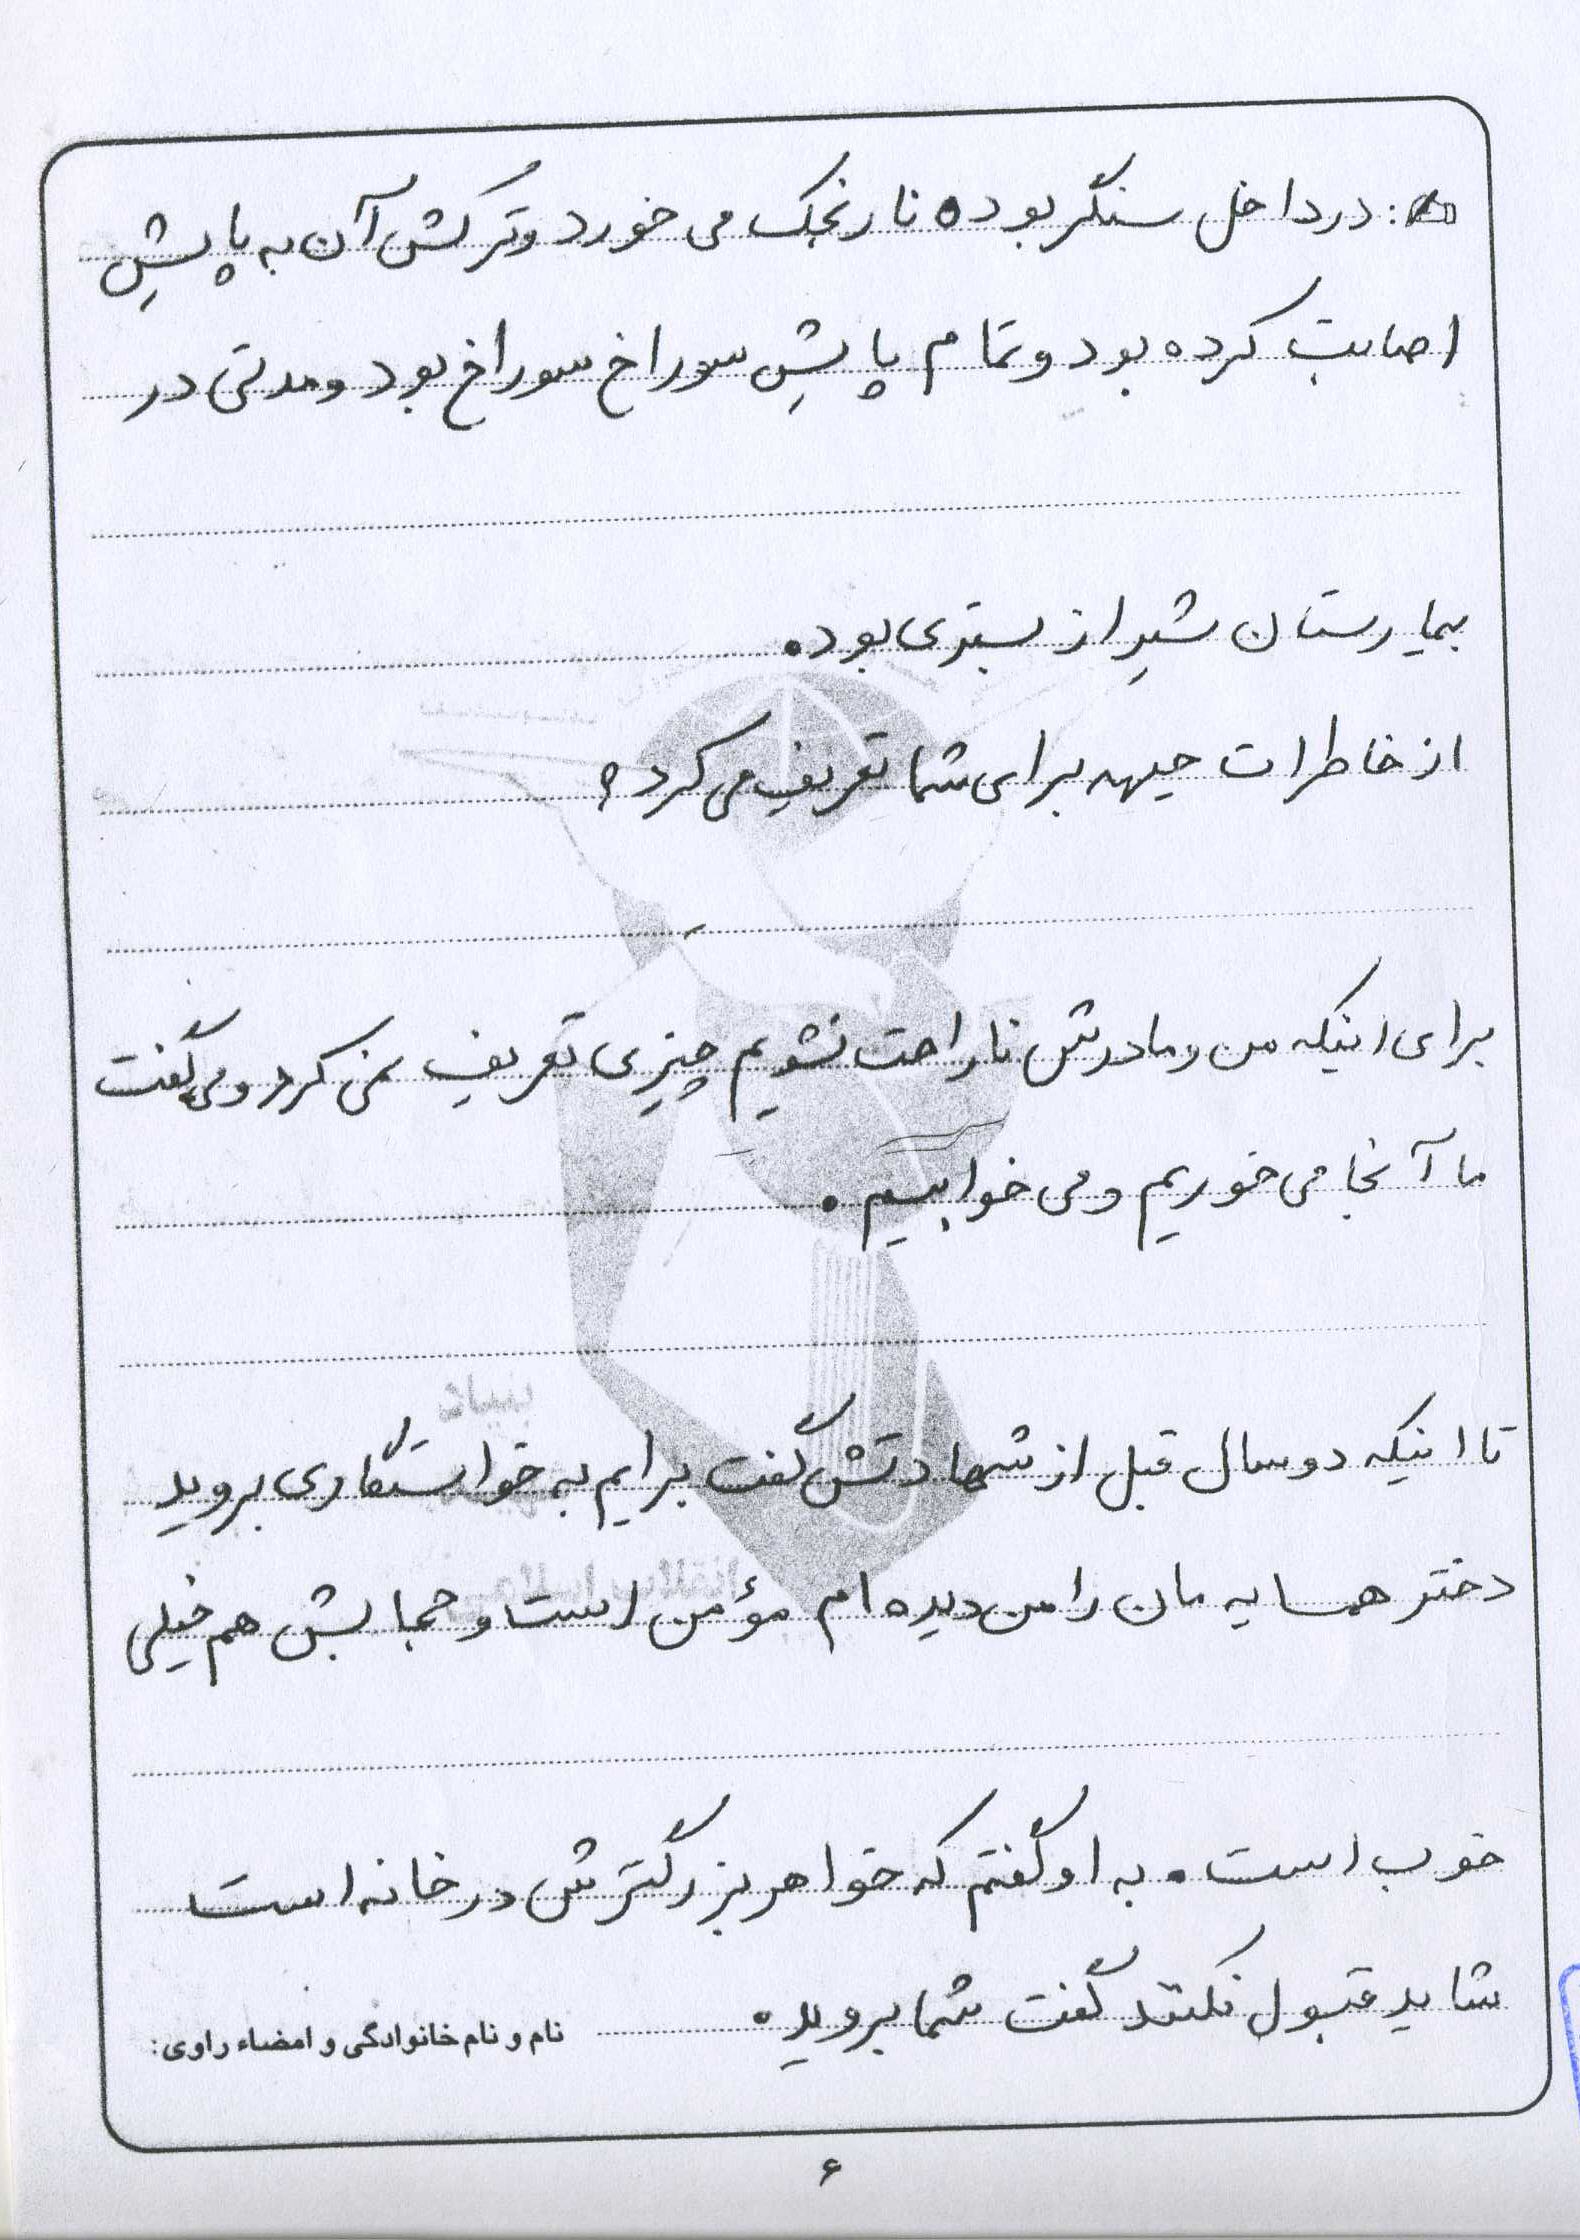 در داخل سنگر بوده نارنجک می خورد و ترکش آن به پایش
اصابت کرده بود و تمام پایش سوراخ سوراخ بود و مدتی در
بیمارستان شیراز بستری بود.
از خاطرات جبهه برای شما تعریف می کرد؟
برای اینکه من و مادرش ناراحت نشویم چیزی تعریف نمی کرد و می گفت
ما آنجا می خوریم و می خوابیم.
بنیاد
تا اینکه دو سال قبل از شهادتش گفت برایم به خواستگاری بروید
انقلاب اسلامی
دختر همسایه مان را من دیده ام مؤمن است و حجابش هم خیلی
خوب است. به او گفتم که خواهر بزرگترش در خانه است
شاید قبول نکنند گفت شما بروید.
نام و نام خانوادگی و امضاء راوی:
۶